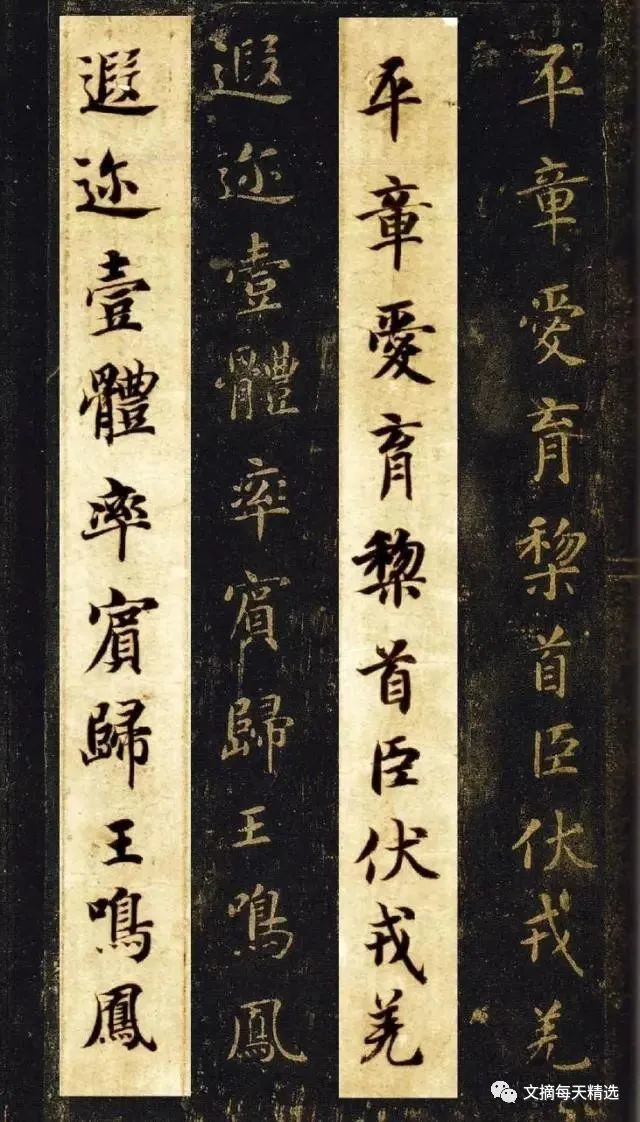 平章愛育黎首臣伏戎羌
平章愛育黎首臣伏戎羌
遐迩壹體率賓歸王鳴鳳
遐迩壹體率賓歸王鳴鳳
文摘每天精选